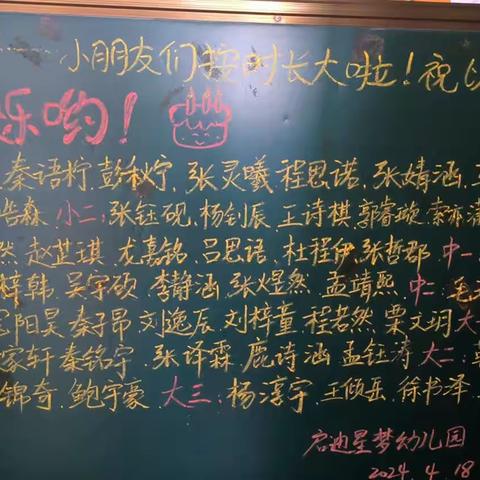 小朋友们按时长大啦！祝
乐哟！
秦语柠.彭秋宁、张灵曦 程思诺、张婧涵、
浩森、小二:张钰砚,杨钊辰、王诗棋.郭睿璇.索亦潇
然 赵芷琪 龙嘉铭、吕思语、杜程伊 张哲郡 中一
梓韩、吴宇硕 李静涵 张煜然、孟靖熙 中二
阳昊、秦子昂 刘逸辰、刘梓童、程若然、栗文玥 大一
家轩 秦铭宇、张译霖、鹿诗涵 孟钰涛 大二:
锦奇、鲍宇豪、大三:杨淳宇、王倾岳、徐书泽、
启迪星梦幼儿园
2024.4.18